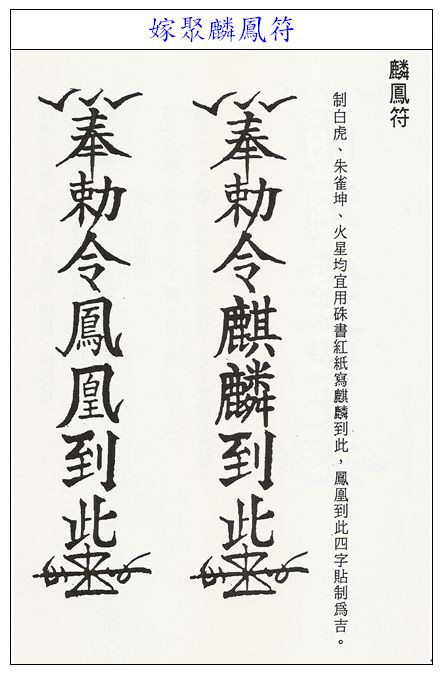 嫁聚麟鳳符
麟鳳符
制白虎、朱雀坤、火星均宜用硃書紅紙寫麒麟到此，鳳凰到此四字貼制爲吉。
奉勅令麒麟到此
奉勅令鳳凰到此